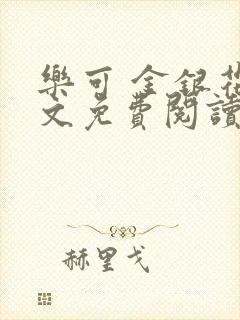 樂可 金銀花
文免費閱讀
赫里戈